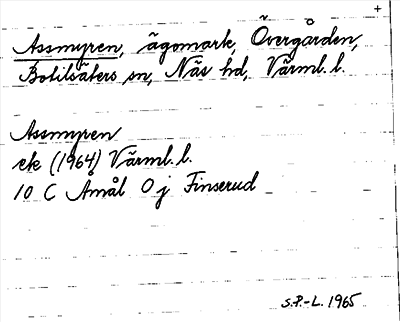 +
Assmyren, ägomark, Övergården,
Botilsäters sn, Näs hd, Värml. l.
Assmyren
ek (1964) Värml. l.
10 C Åmål O j Finserud
S.P.-L. 1965